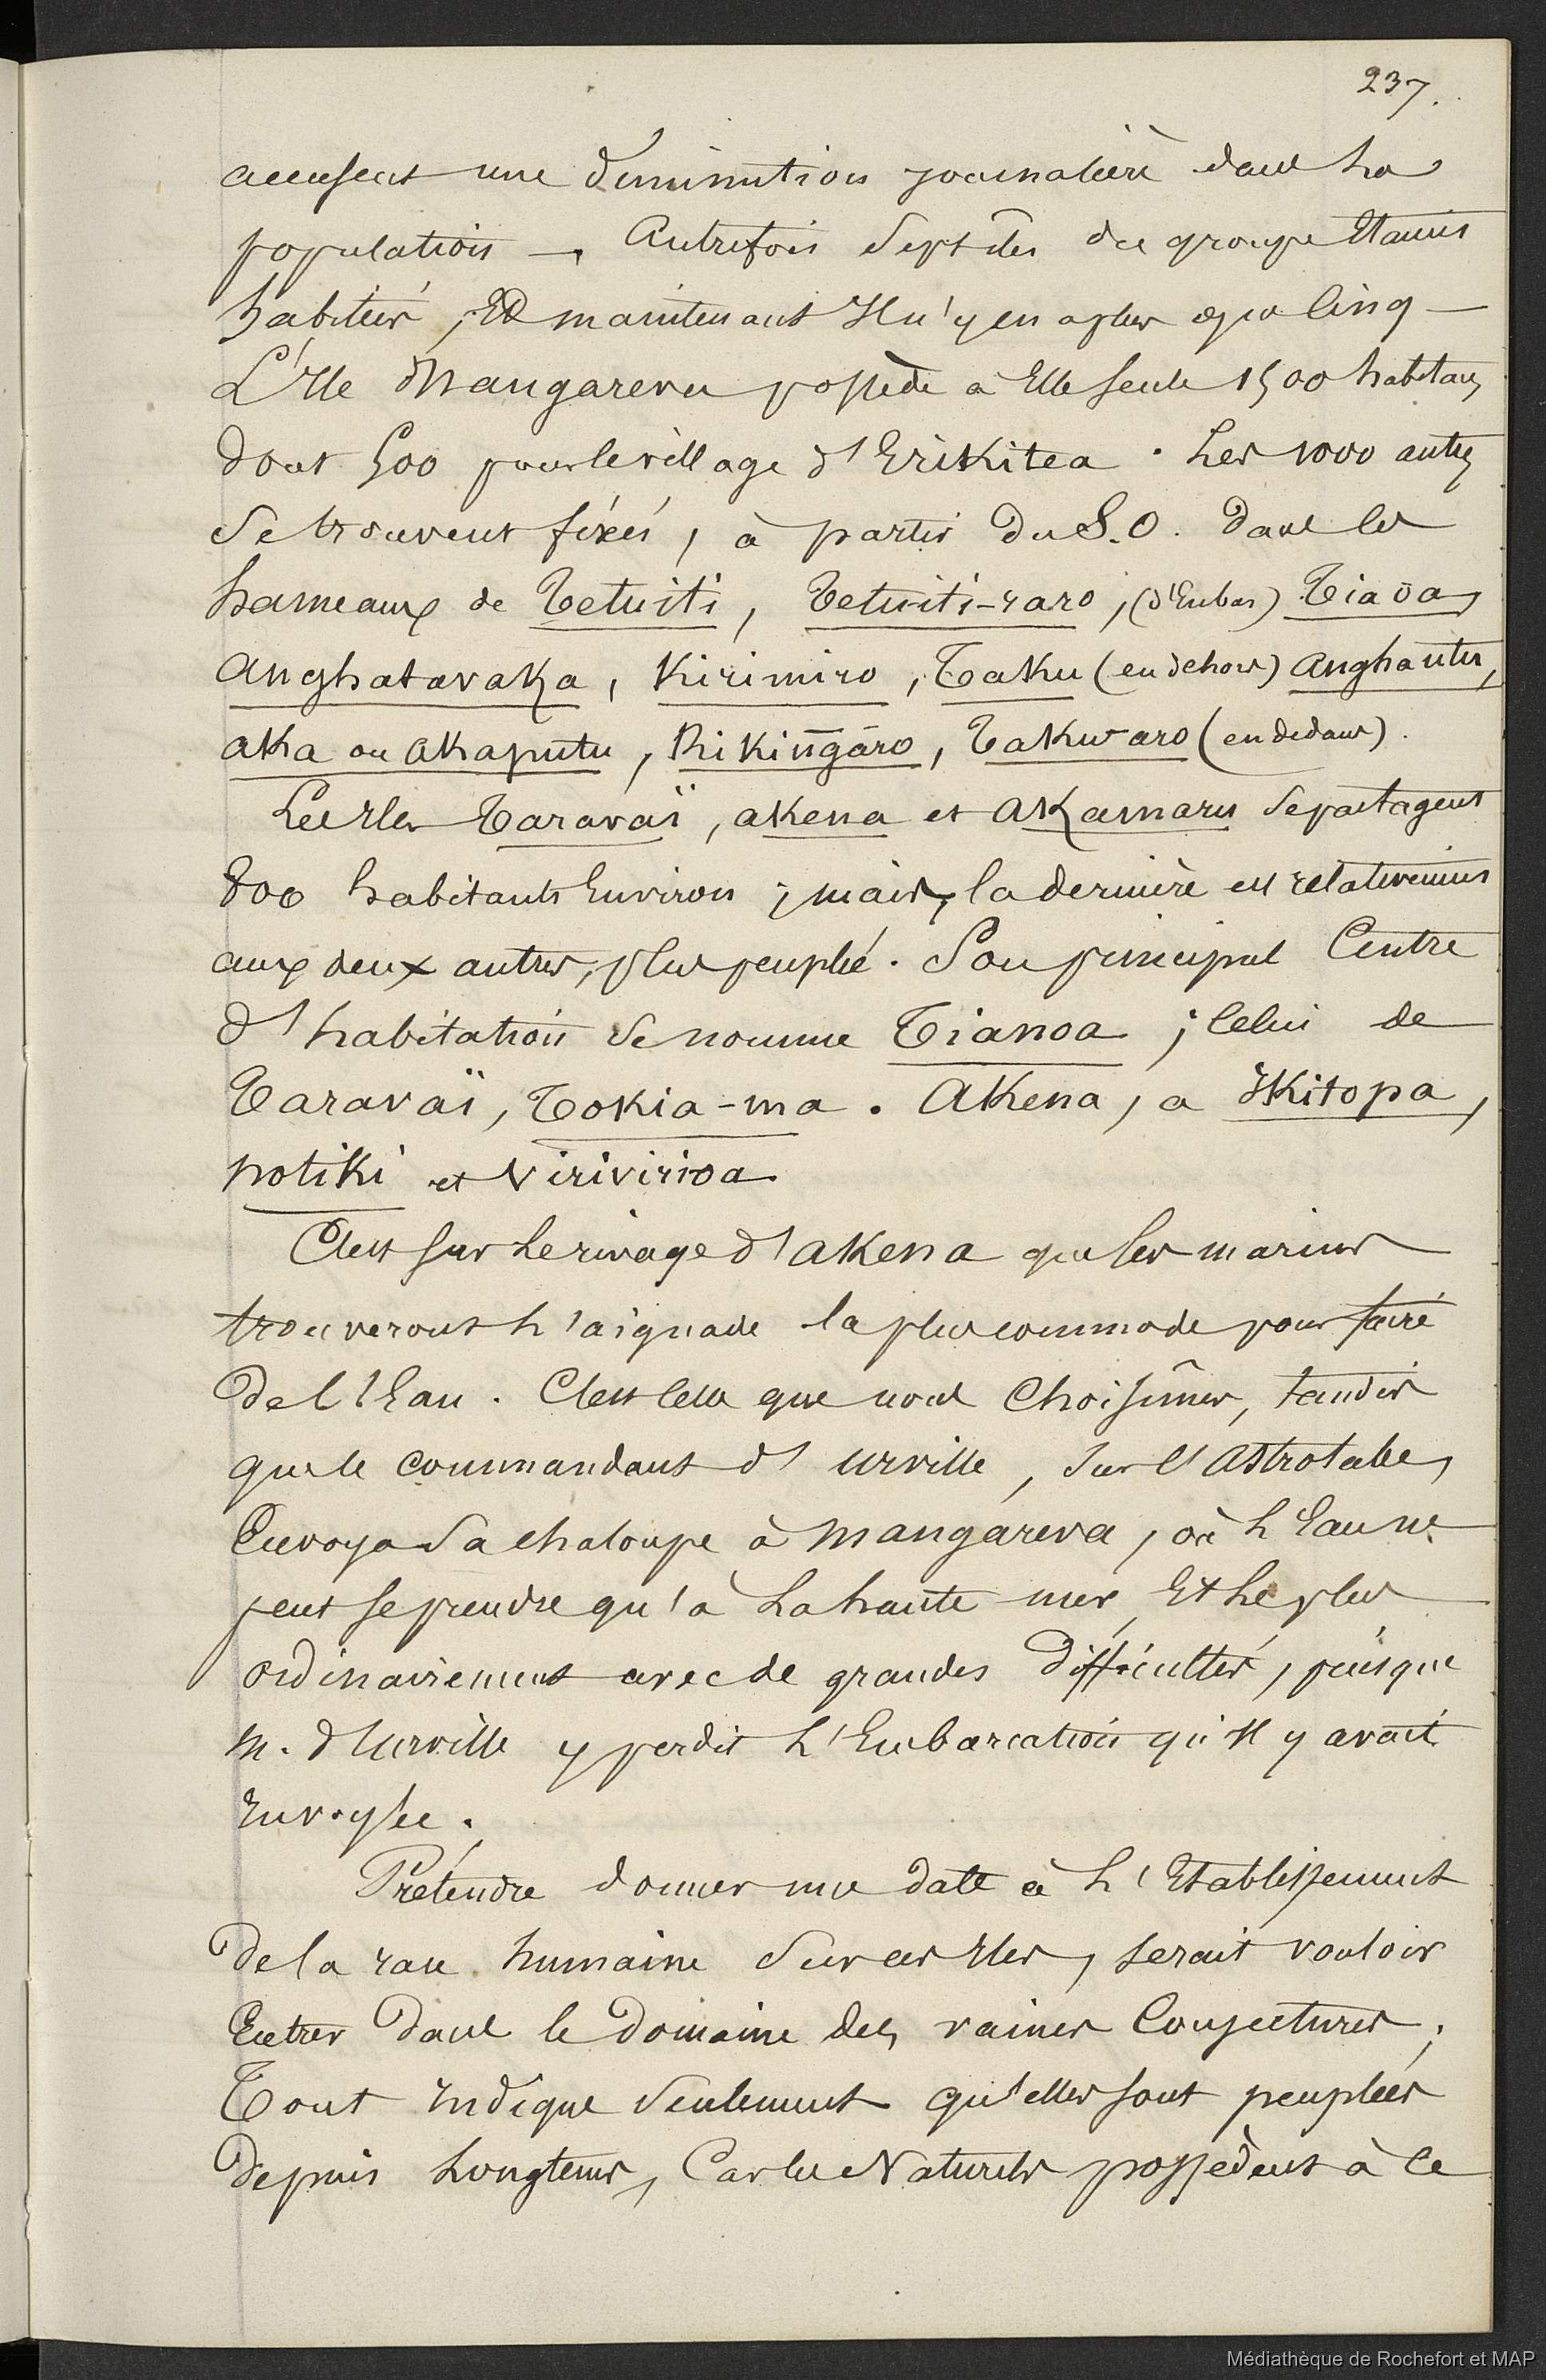 237.
accusent une diminution journalière dans la
population —, Autrefois sept îles du groupe Etaient
habitées, Et maintenant Il n'y en a plus que Cinq —
L'Ile Mangareva possède à Elle seule 1500 habitans
dont 500 pour le village d'Erikitea. Les 1000 autres
se trouvent fixés, à partir du S.O. dans les
hameaux de Tetuiti, Tetuiti-raro, (d'Enbas) Tiaoa,
Anghatavaka, Kirimiro, Taku (en dehors) Anghauter,
Aka ou Akaputu, Rikingaro, Takuvaro (en dedans).
Les Iles Taravaï, Akena et Akamaru se partagent
800 habitants Environ ; mais, la dernière est relativement
aux deux autres, plus peuplée. Son principal Centre
d'habitation se nomme Tianoa ; Celui de
Taravaï, Tokia-ma. Akena, a Ikitopa,
potiki et Virivirioa.
C'est sur le rivage d'Akena que les marins
trouveront l'aiguade la plus commode pour faire
de l'Eau. C'est celle que nous Choisîmes, tandis
que le commandant d'Urville, sur l'Astrolabe,
Envoya sa chaloupe à Mangareva, où l'Eau ne
peut se prendre qu'à la haute mer, Et le plus
ordinairement avec de grandes difficultés, puisque
M. d'Urville y perdit l'Embarcation qu'Il y avait
Envoyée.
Prétendre donner une date à l'Etablissement
de la race humaine sur ces Iles, serait vouloir
Entrer dans le Domaine des vaines Conjectures ;
Tout Indique seulement qu'elles sont peuplées
depuis longtems, Car les Naturels possèdent à ce
Médiathèque de Rochefort et MAP